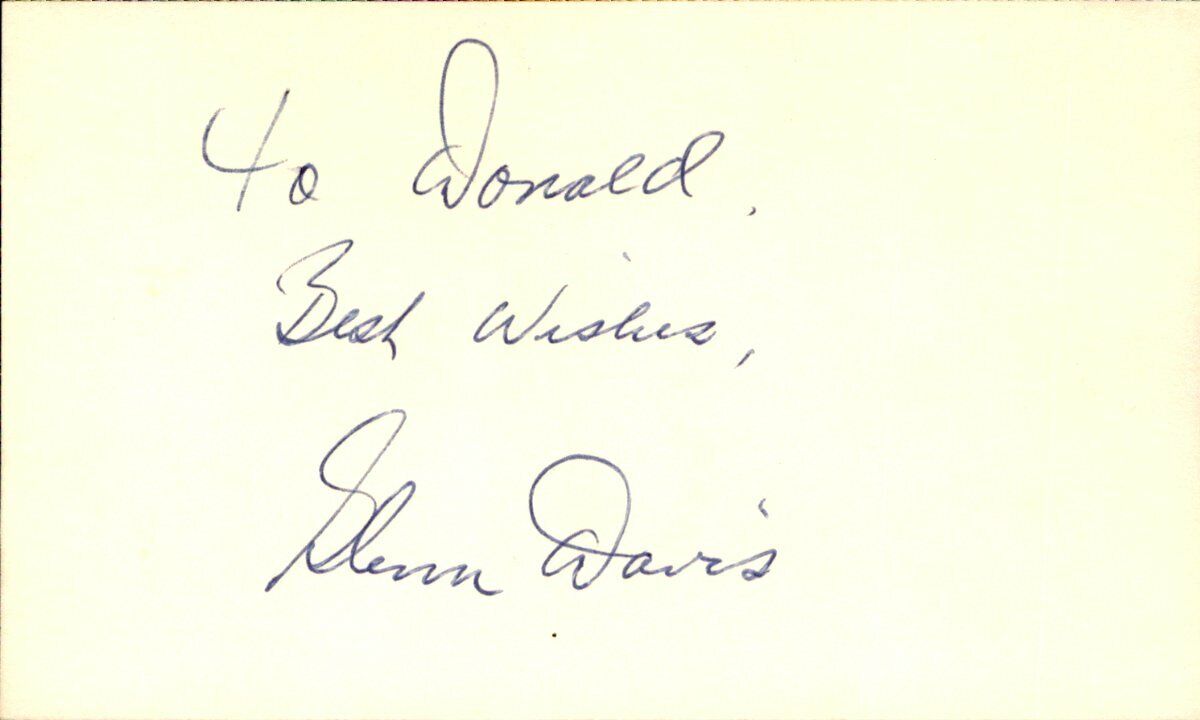 To Donald.
Best Wishes,
Glenn Davis